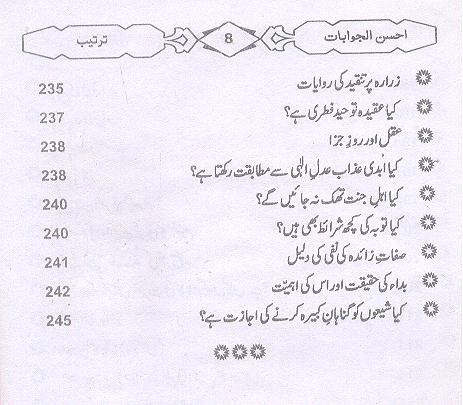 احسن الجوابات 8 ترتیب
زرارہ پر تنقید کی روایات 235
کیا عقیدہ توحید فطری ہے؟ 237
عقل اور روزِ جزا 238
کیا ابدی عذاب عدلِ الٰہی سے مطابقت رکھتا ہے؟ 238
کیا اہلِ جنت تھک نہ جائیں گے؟ 240
کیا توبہ کی کچھ شرائط بھی ہیں؟ 240
صفاتِ زائدہ کی نفی کی دلیل 241
بداء کی حقیقت اور اس کی اہمیّت 242
کیا شیعوں کو گناہانِ کبیرہ کرنے کی اجازت ہے؟ 245